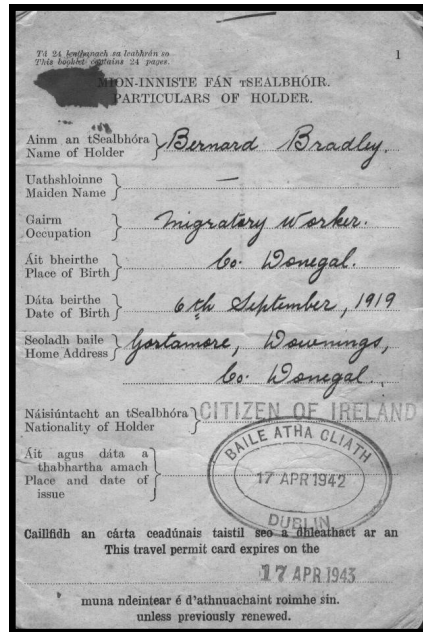 Tá 24 leathanach sa leabhrán so
This booklet contains 24 pages.
1
MION-INNISTE FÁN TSEALBHÓIR.
PARTICULARS OF HOLDER.
Ainm an tSealbhóra
Name of Holder
Bernard Bradley.
Uathshloinne
Maiden Name
—
Gairm
Occupation
Migratory Worker.
Áit bheirthe
Place of Birth
Co. Donegal.
Dáta beirthe
Date of Birth
6th September, 1919
Seoladh baile
Home Address
Gortamore, Downings,
Co. Donegal.
Náisiúntacht an tSealbhóra
Nationality of Holder
CITIZEN OF IRELAND
Áit agus dáta a
thabhartha amach
Place and date of
issue
BAILE ATHA CLIATH
17 APR 1942
DUBLIN
Caillfidh an cárta ceadúnais taistil seo a dhleathacht ar an
This travel permit card expires on the
17 APR 1943
muna ndeintear é d'athnuachaint roimhe sin.
unless previously renewed.